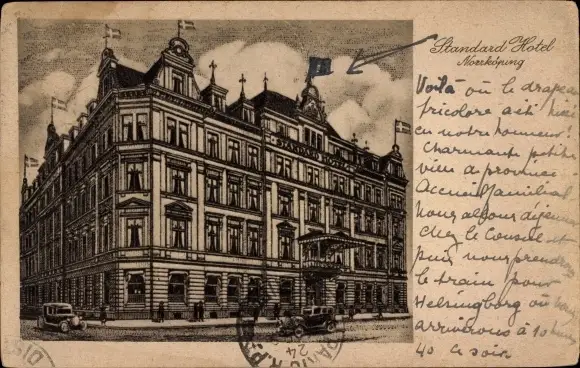 Standard Hotel
Norrköping
STANDARD HOTELL
Voilà où le drapeau
tricolore a été hissé
en notre honneur!
Charmante petite
ville de province
Accueil familial
Nous allons déjeuner
chez le Consul et
puis nous prendrons
le train pour
Helsingborg où nous
arriverons à 10 heures
40 ce soir
24